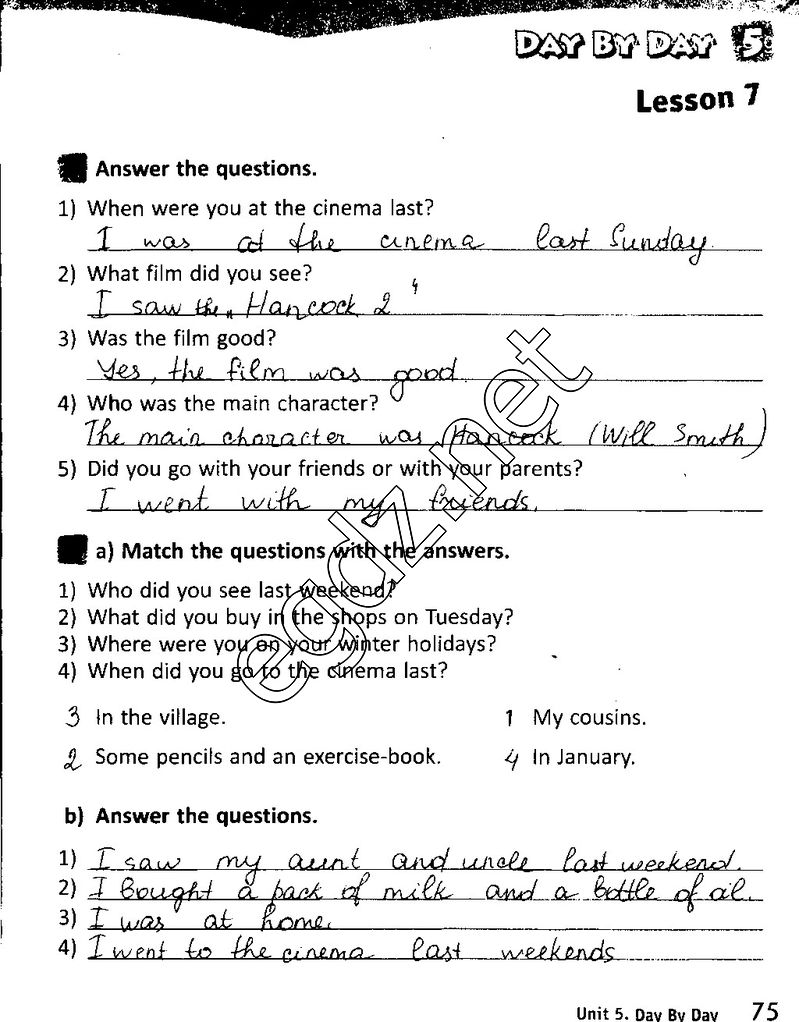 DAY BY DAY 5
Lesson 7
Answer the questions.
1) When were you at the cinema last?
I was at the cinema last Sunday.
2) What film did you see?
I saw the „Hancock 2"
3) Was the film good?
Yes, the film was good.
4) Who was the main character?
The main character was Hancock (Will Smith)
5) Did you go with your friends or with your parents?
I went with my friends.
a) Match the questions with the answers.
1) Who did you see last weekend?
2) What did you buy in the shops on Tuesday?
3) Where were you on your winter holidays?
4) When did you go to the cinema last?
3 In the village. 1 My cousins.
2 Some pencils and an exercise-book. 4 In January.
b) Answer the questions.
1) I saw my aunt and uncle last weekend.
2) I bought a pack of milk and a bottle of oil.
3) I was at home.
4) I went to the cinema last weekends
Unit 5. Day By Day 75
egdz.net